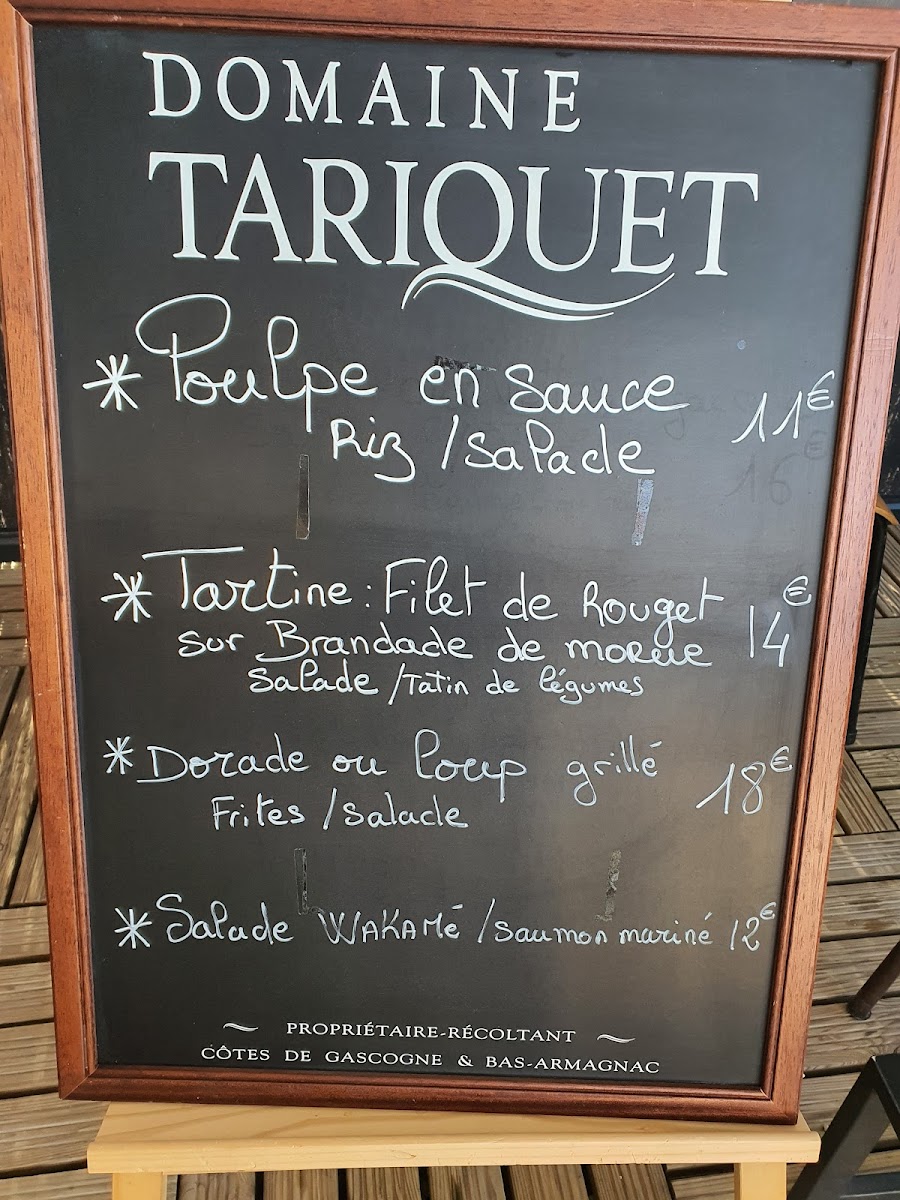 DOMAINE
TARIQUET
* Poulpe en sauce 11€
Riz / salade
16€
* Tartine : Filet de Rouget 14€
sur Brandade de morue
Salade / Tatin de légumes
* Dorade ou loup grillé 18€
Frites / salade
* Salade WAKAMé / saumon mariné 12€
~ PROPRIÉTAIRE-RÉCOLTANT ~
CÔTES DE GASCOGNE & BAS-ARMAGNAC